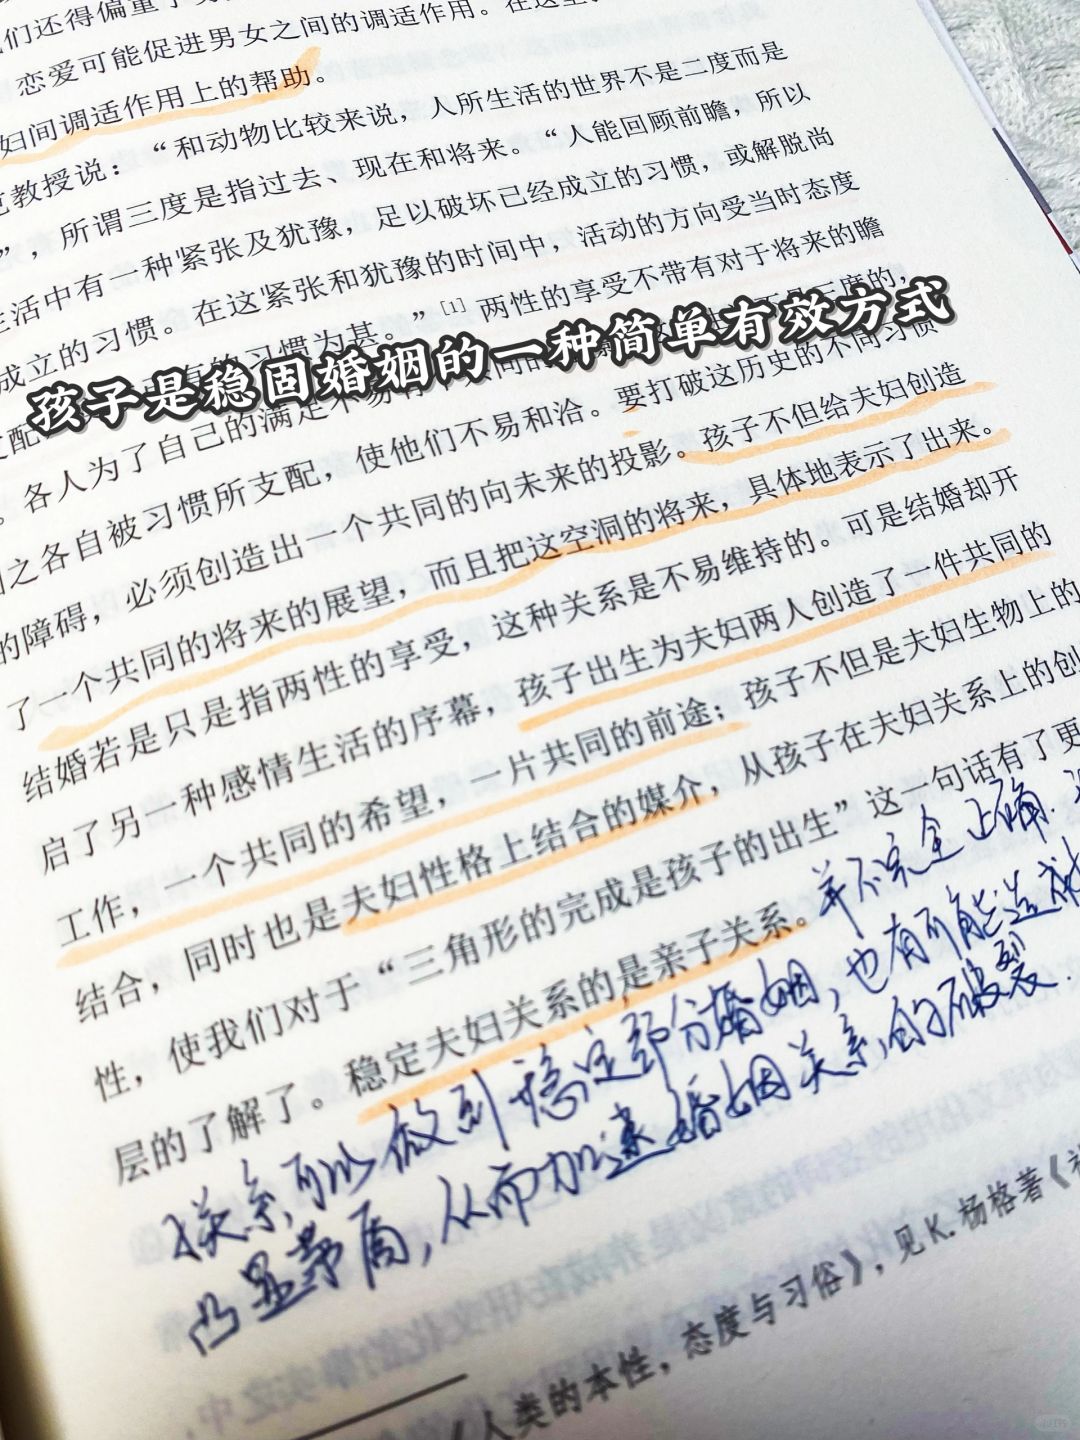 们还得偏重于
恋爱可能促进男女之间的调适作用。在这
妇间调适作用上的帮助。
教授说：“和动物比较来说，人所生活的世界不是二度而是
”，所谓三度是指过去、现在和将来。“人能回顾前瞻，所以
生活中有一种紧张及犹豫，足以破坏已经成立的习惯，或解脱尚
成立的习惯。在这紧张和犹豫的时间中，活动的方向受当时态度
有的习惯为甚。”[1]两性的享受不带有对于将来的瞻
孩子是稳固婚姻的一种简单有效方式
。各人为了自己的满足不易有
之各自被习惯所支配，使他们不易和洽。要打破这历史的不同习惯
的障碍，必须创造出一个共同的向未来的投影。孩子不但给夫妇创造
了一个共同的将来的展望，而且把这空洞的将来，具体地表示了出来。
结婚若是只是指两性的享受，这种关系是不易维持的。可是结婚却开
启了另一种感情生活的序幕，孩子出生为夫妇两人创造了一件共同的
工作，一个共同的希望，一片共同的前途；孩子不但是夫妇生物上的
结合，同时也是夫妇性格上结合的媒介，从孩子在夫妇关系上的创
性，使我们对于“三角形的完成是孩子的出生”这一句话有了更
层的了解了。稳定夫妇关系的是亲子关系。并不完全正确.
关系可以做到稳定部分婚姻，也有可能造成
凸显矛盾，从而加速婚姻关系的破裂.
《人类的本性，态度与习俗》，见K.杨格著《